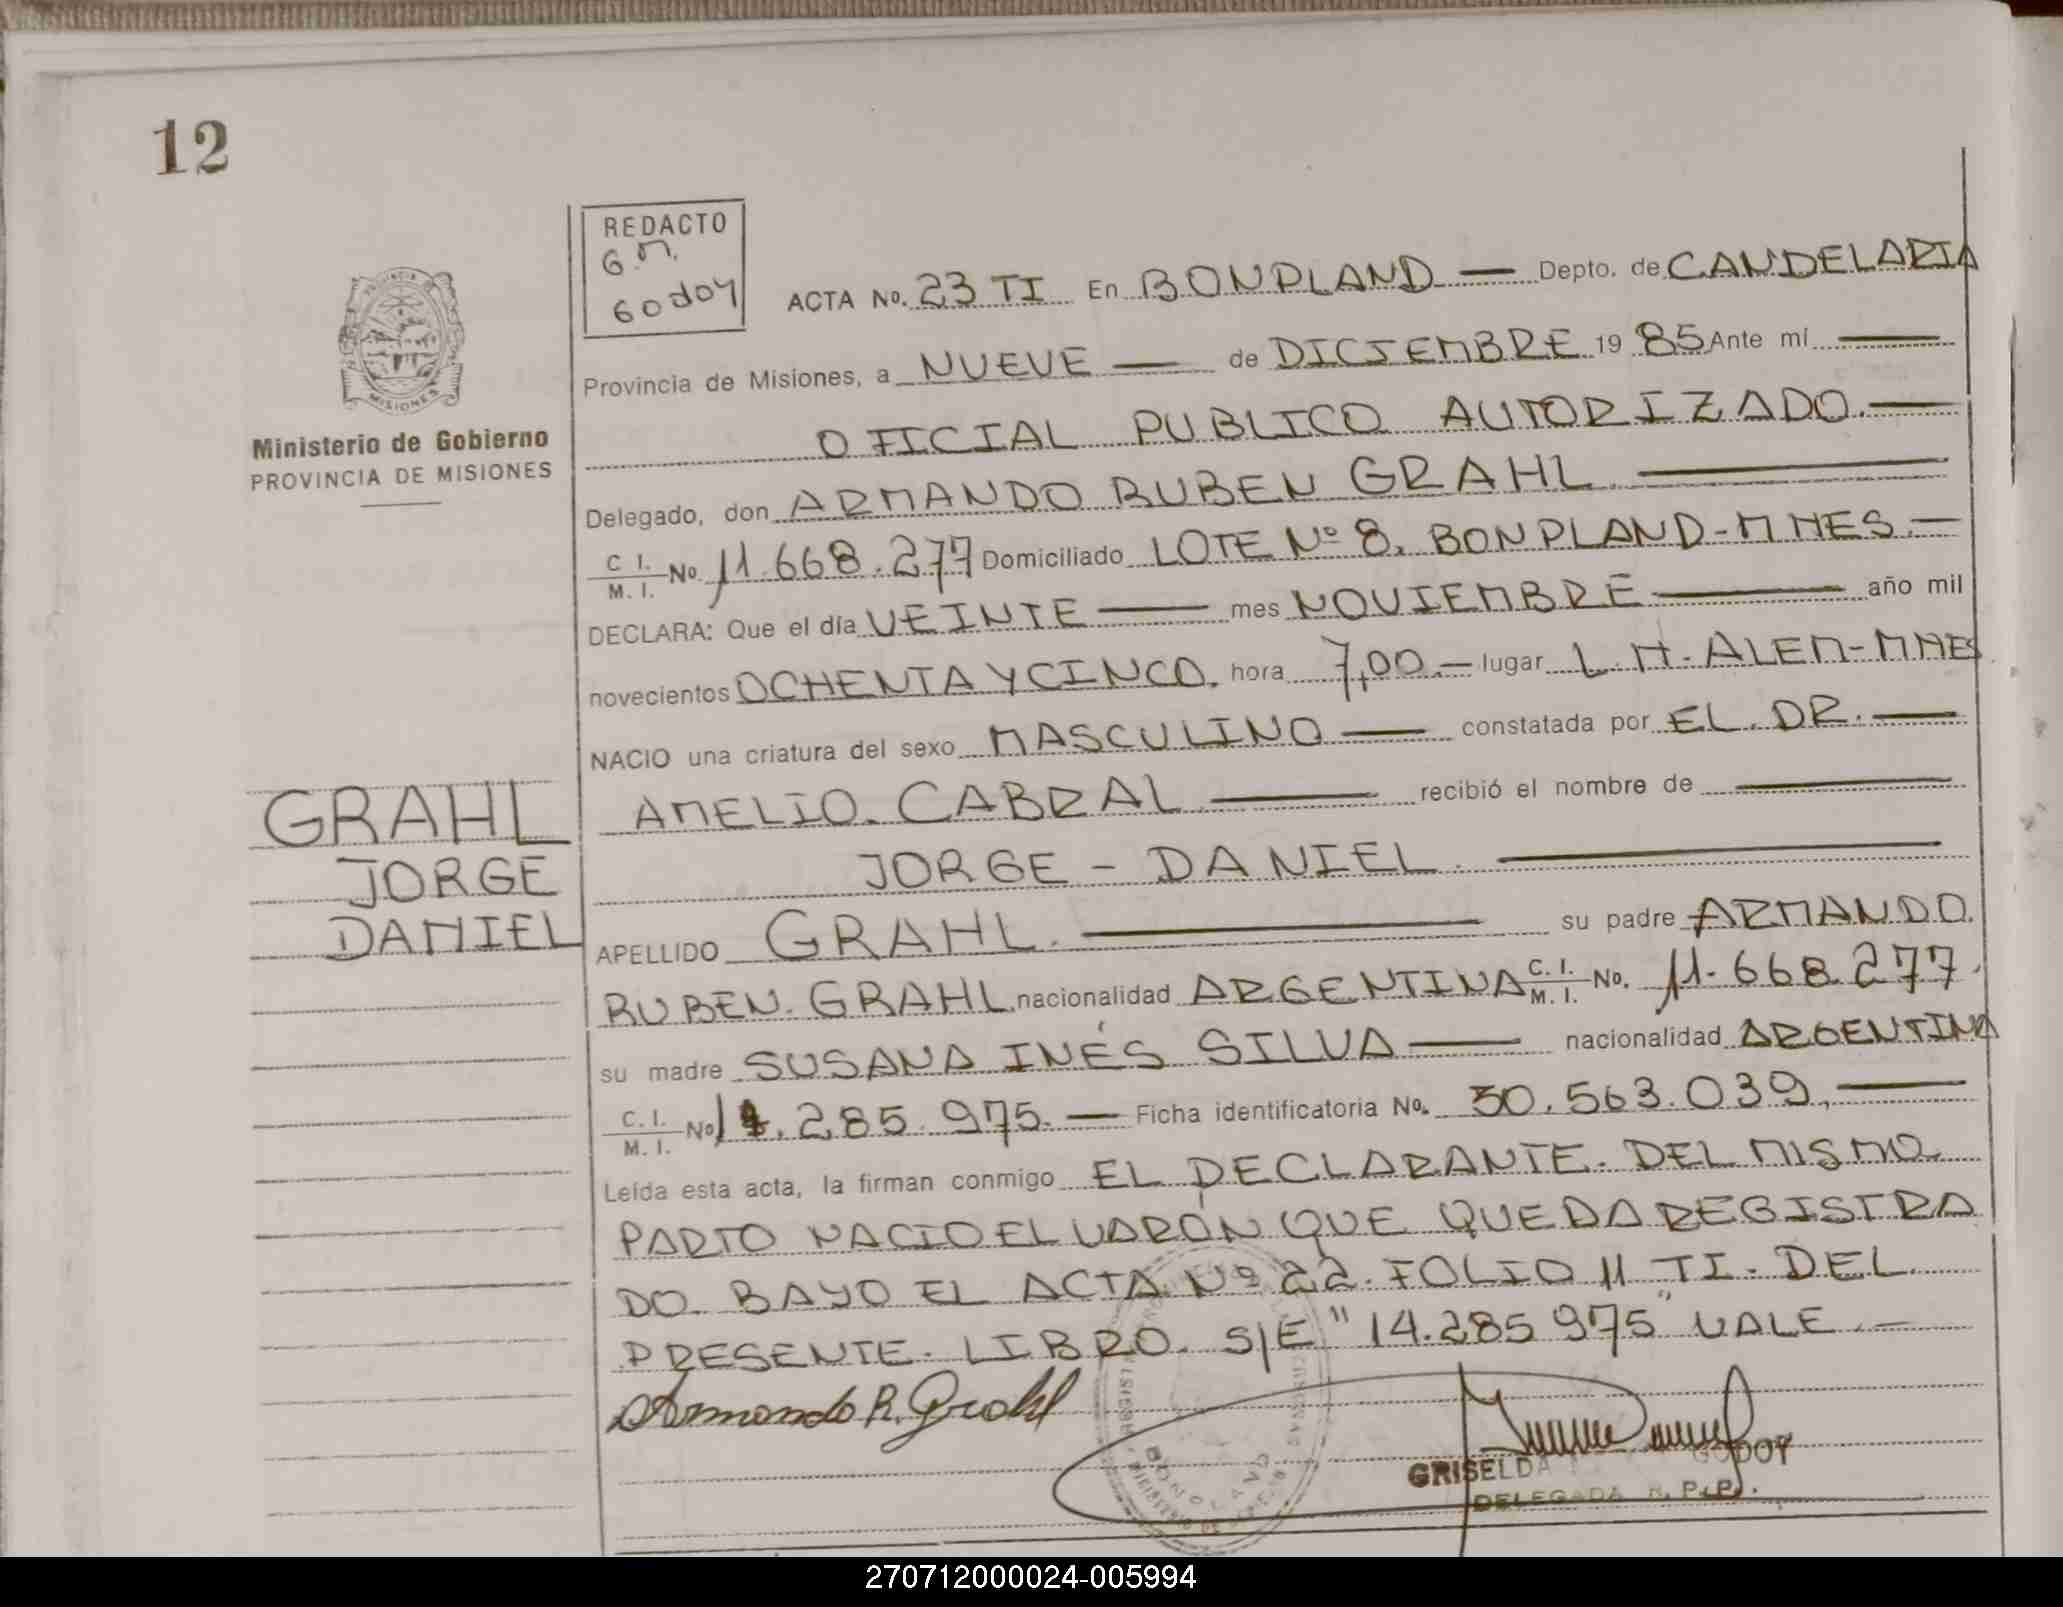 12
REDACTO
G.M.
Godoy
ACTA No. 23 TI En BONPLAND — Depto. de CANDELARIA
Provincia de Misiones, a NUEVE — de DICIEMBRE 19 85 Ante mí —
OFICIAL PUBLICO AUTORIZADO. —
Delegado, don ARMANDO RUBEN GRAHL. —
C. I. / M. I. No. 11.668.277 Domiciliado LOTE Nº 8. BONPLAND-MNES. —
DECLARA: Que el día VEINTE — mes NOVIEMBRE — año mil
novecientos OCHENTA Y CINCO. hora 7,00. — lugar L.N.ALEM-MNES
NACIO una criatura del sexo MASCULINO — constatada por EL. DR. —
AMELIO. CABRAL — recibió el nombre de —
JORGE - DANIEL. —
APELLIDO GRAHL. — su padre ARMANDO.
RUBEN. GRAHL. nacionalidad ARGENTINA C. I. / M. I. No. 11.668.277.
su madre SUSANA INÉS SILVA — nacionalidad ARGENTINA
C. I. / M. I. No. 14.285.975. — Ficha identificatoria No. 30.563.039. —
Leída esta acta, la firman conmigo EL DECLARANTE. DEL MISMO
PARTO NACIO EL VARÓN QUE QUEDA REGISTRA
DO. BAYO EL ACTA Nº 22. FOLIO 11 TI. DEL
PRESENTE. LIBRO. S/E "14.285975" VALE. —
Armando R. Grahl
GRISELDA GODOY
DELEGADA R. P. P.
PROVINCIA
MISIONES
Ministerio de Gobierno
PROVINCIA DE MISIONES
GRAHL
JORGE
DANIEL
BONPLAND
270712000024-005994